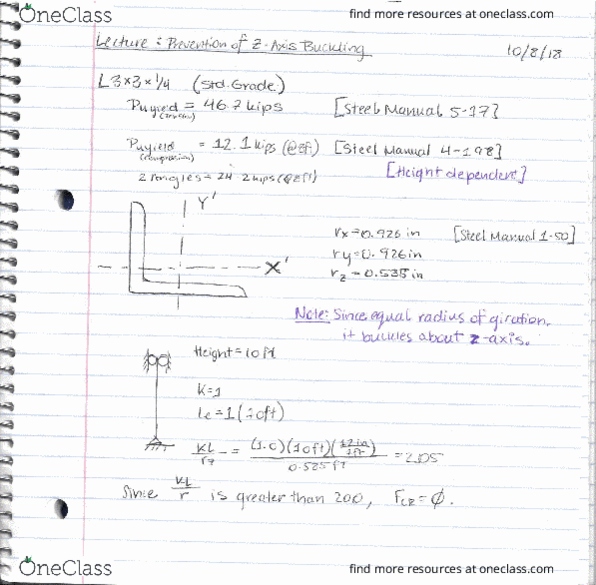 OneClass
find more resources at oneclass.com
Lecture: Prevention of Z-Axis Buckling
10/8/18
L3×3×1/4 (Std. Grade)
Puyield = 46.7 kips [Steel Manual 5-17]
Puyield = 12.1 kips (@8ft) [Steel Manual 4-198]
(compression)
2 Angles = 24.2 kips (@8ft) [Height dependent]
Y'
X'
rx=0.926 in [Steel Manual 1-50]
ry=0.926in
rz=0.585in
Note: Since equal radius of giration,
it buckles about z-axis.
Height=10ft
K=1
Lc=1(10ft)
KL/rz = (1.0)(10ft)(12in/1ft)/0.585ft = 205
Since KL/r is greater than 200, FCR=∅.
OneClass
find more resources at oneclass.com